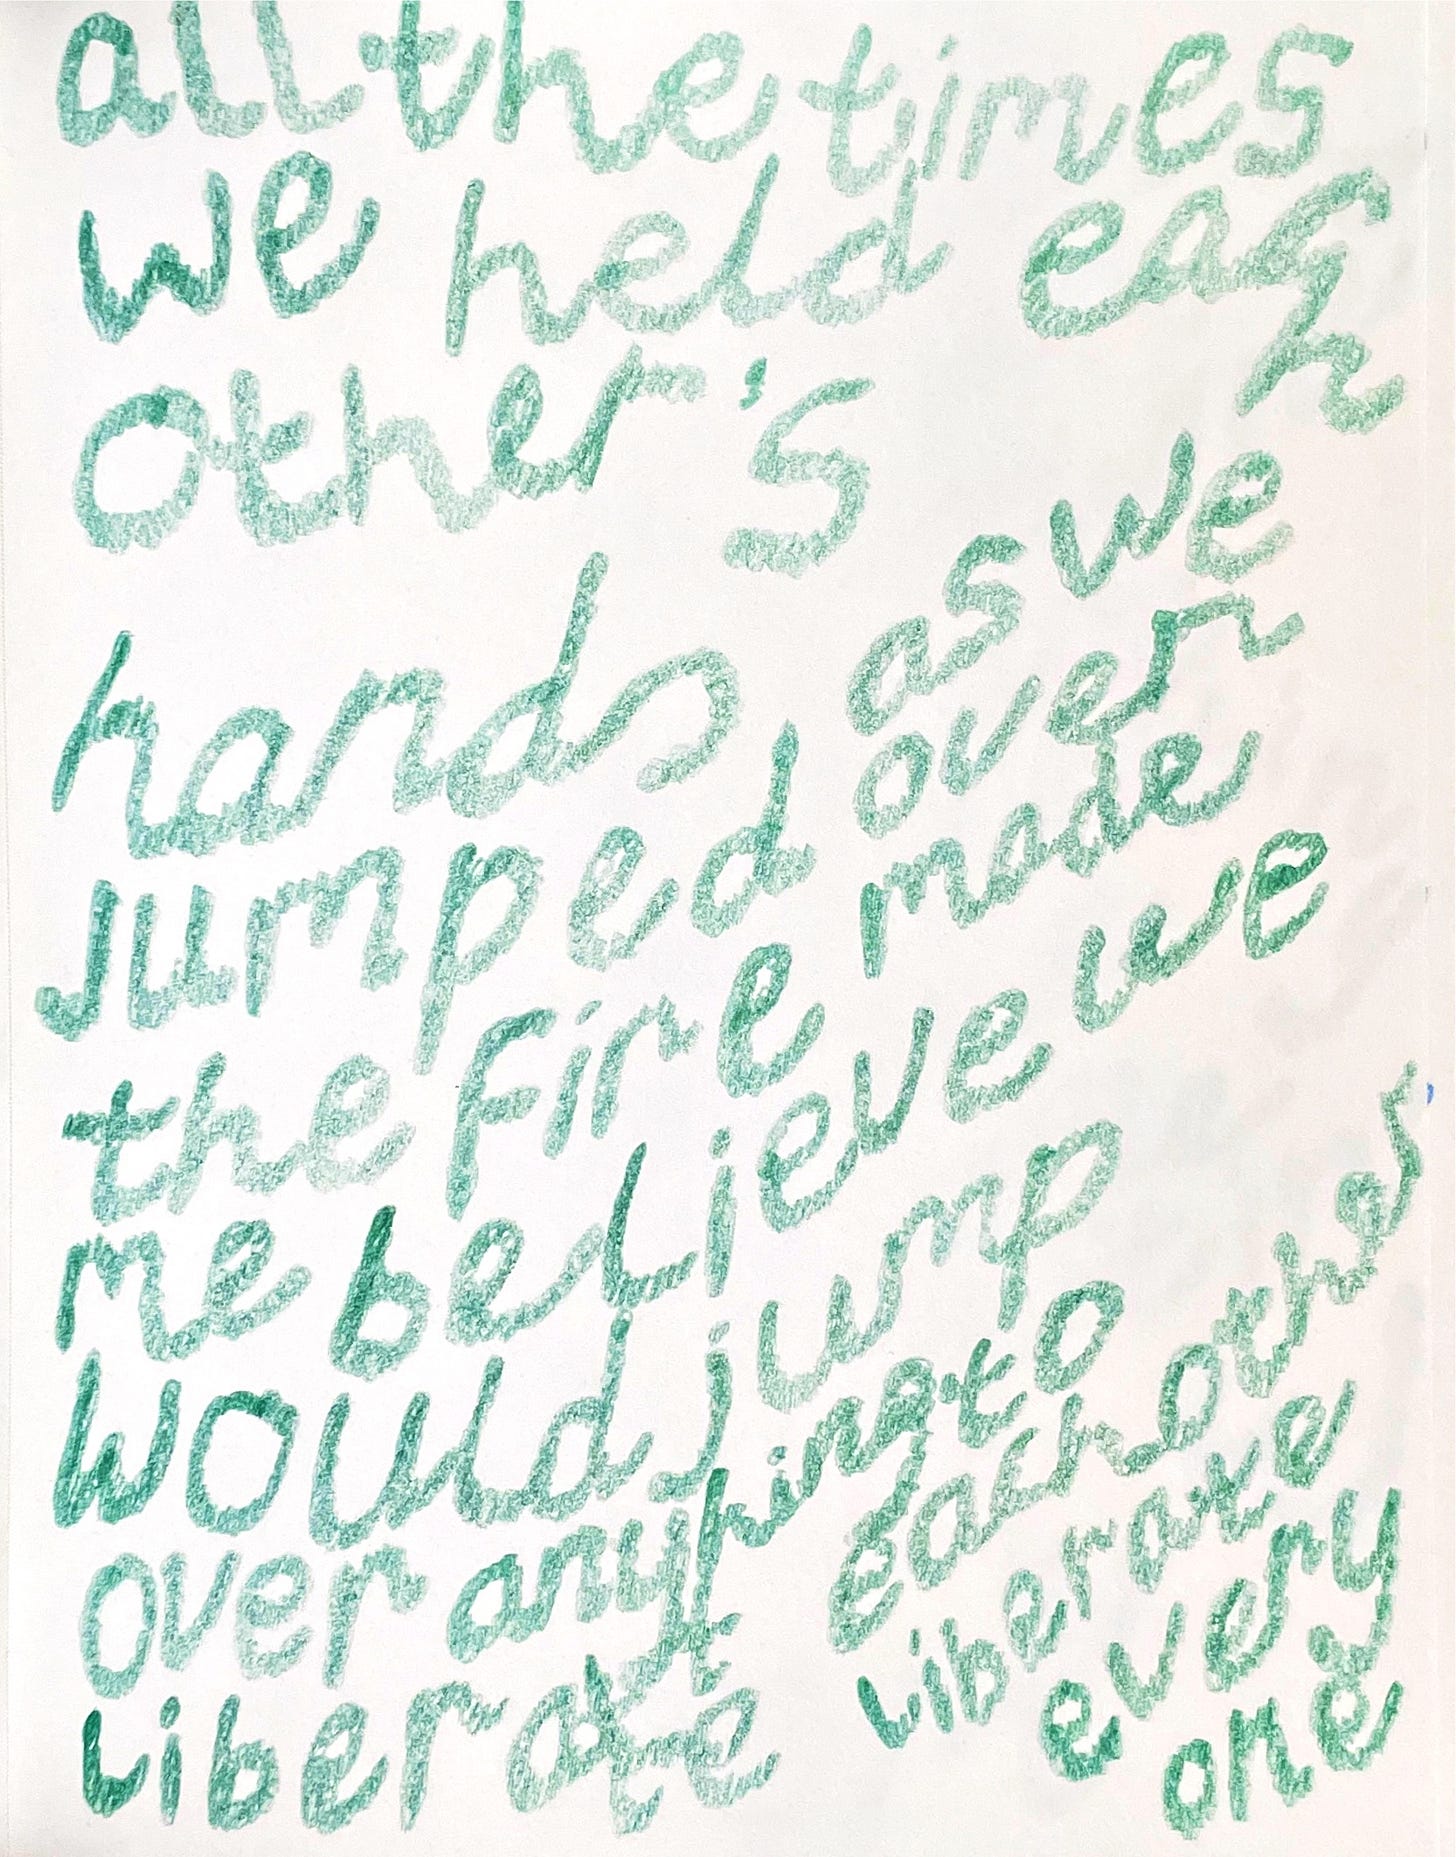 all the times
we held each
other's
hands as we
jumped over
the fire made
me believe we
would jump
over anything to
liberate each other
liberate
every
one